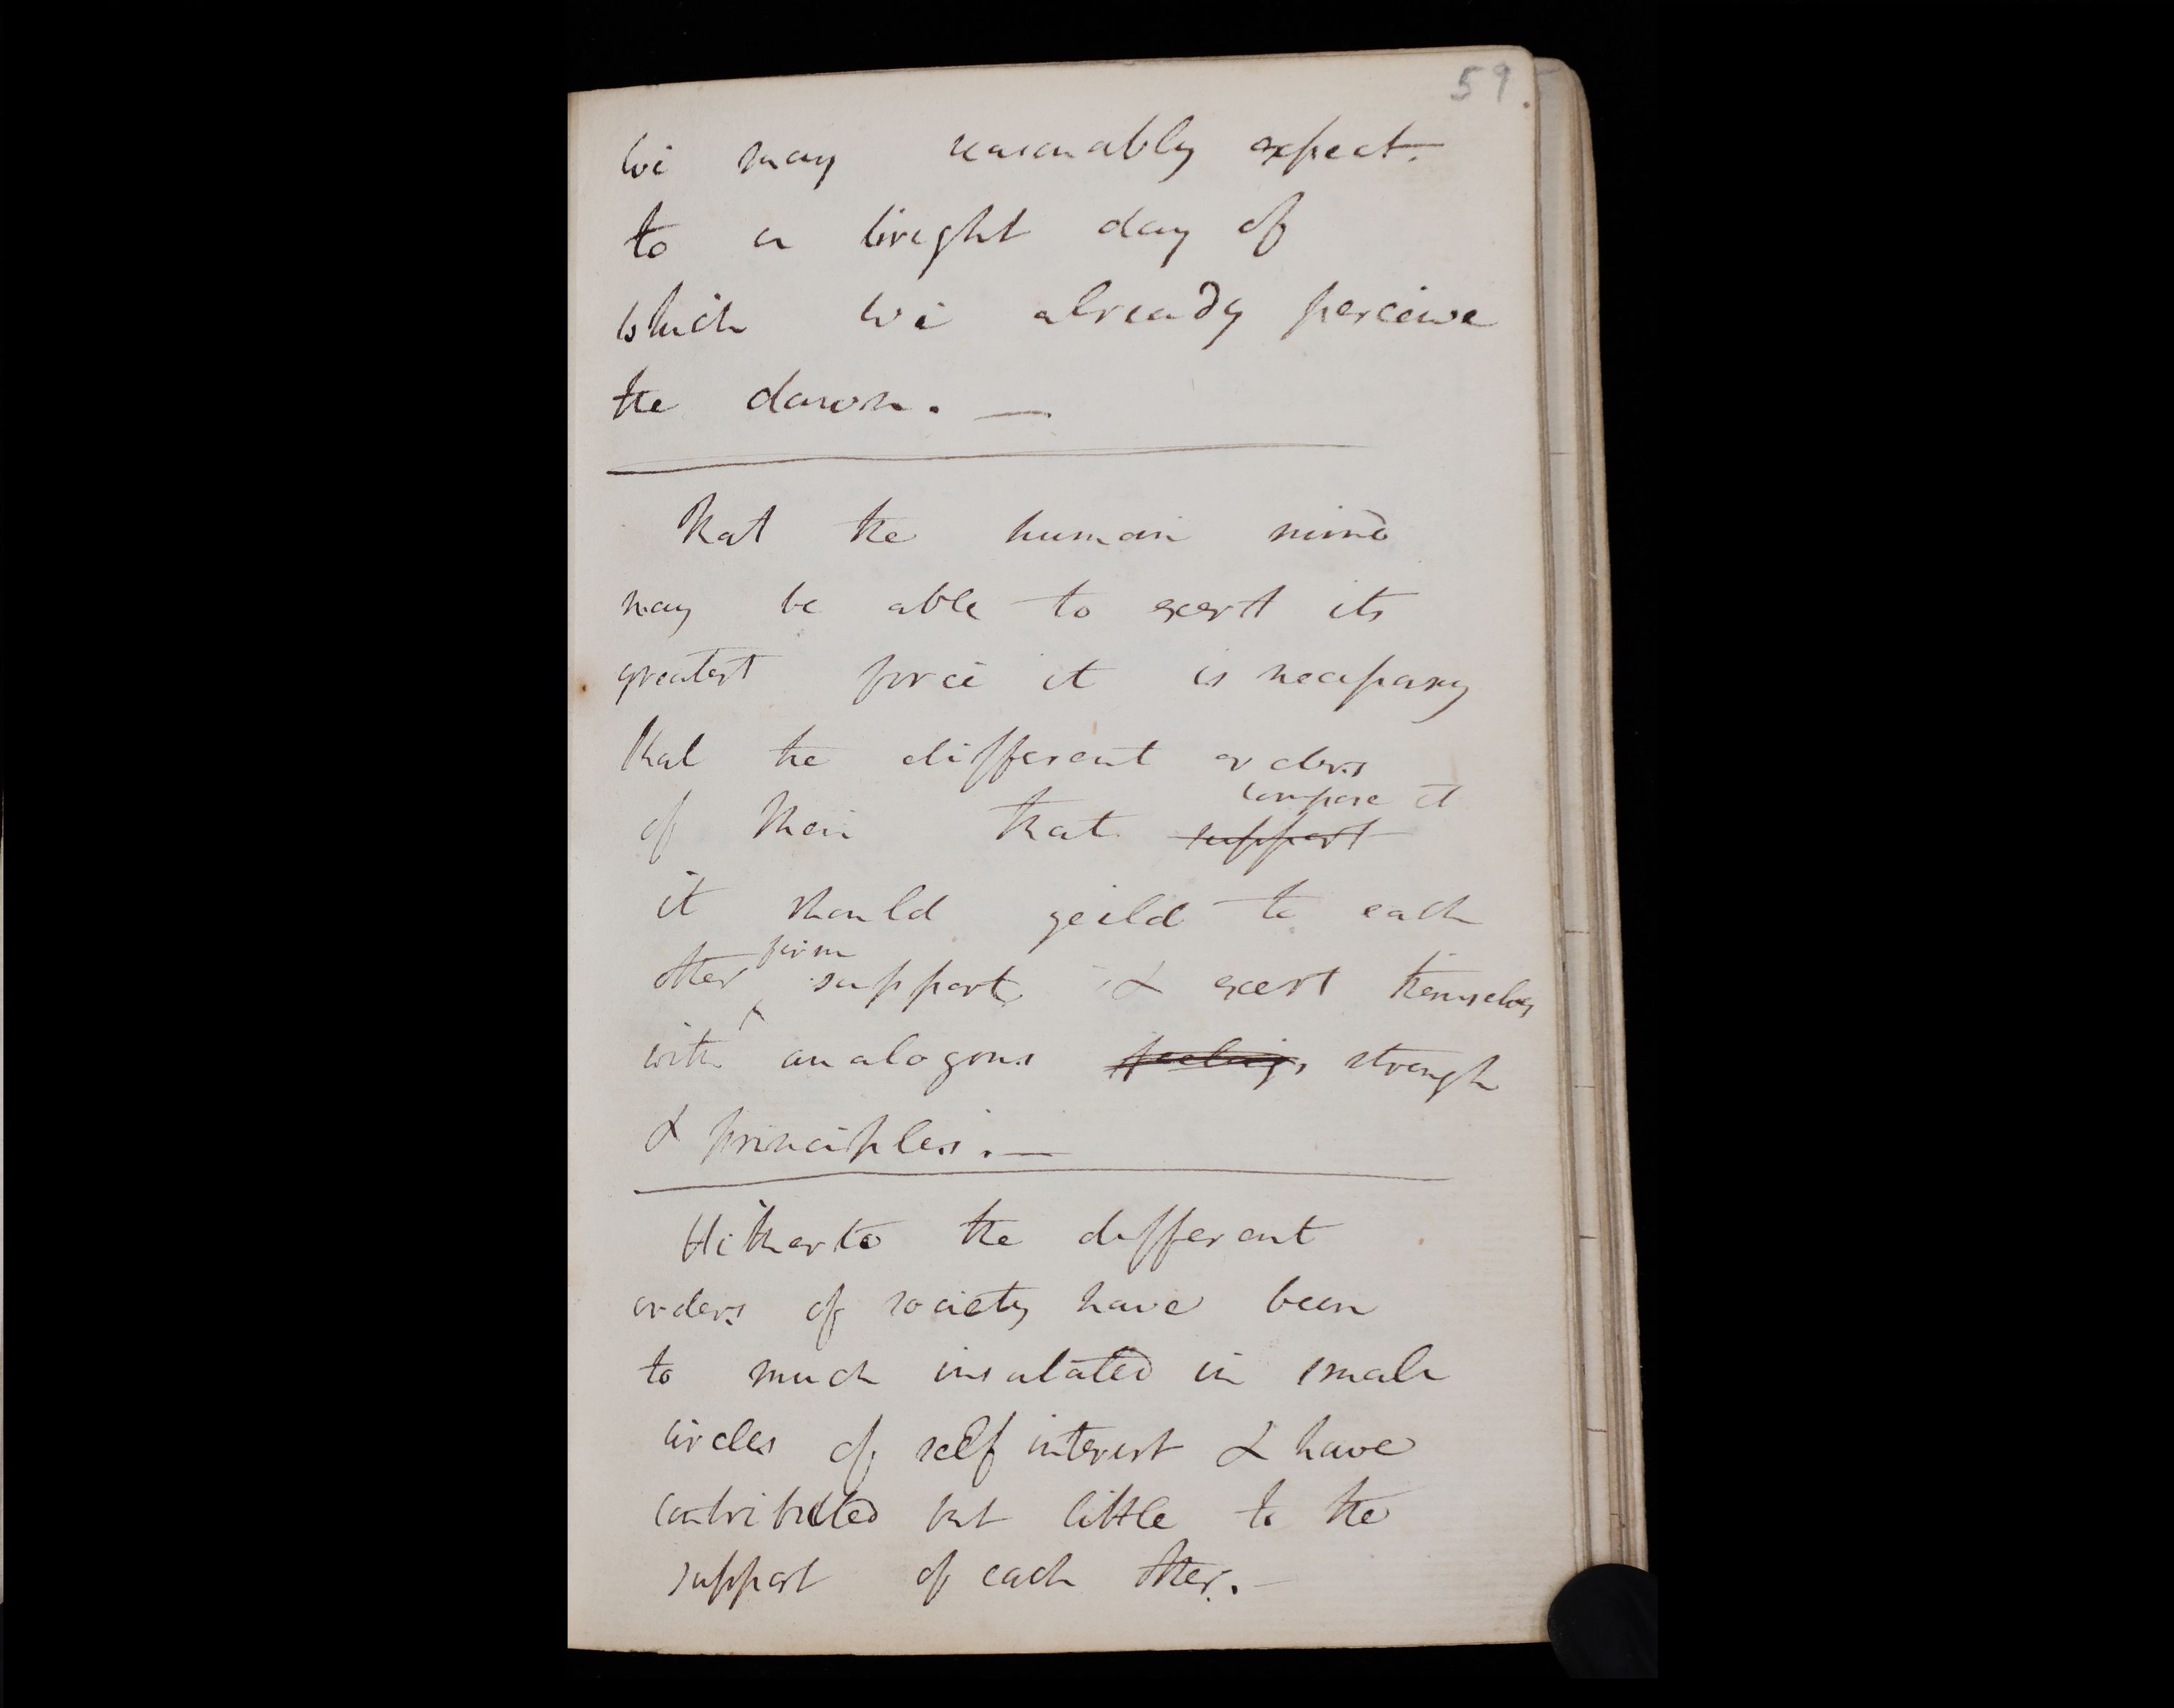 59.
we may reasonably expect.
to a bright day of
which we already perceive
the dawn. —
That the human mind
may be able to exert its
greatest force it is necessary
that the different orders
compose it
of Men that support
it should yeild to each
firm
other support & exert themselves
with analogous feelings strength
& principles. —
Hitherto the different
orders of society have been
to much insulated in small
circles of self interest & have
contributed but little to the
support of each other. —